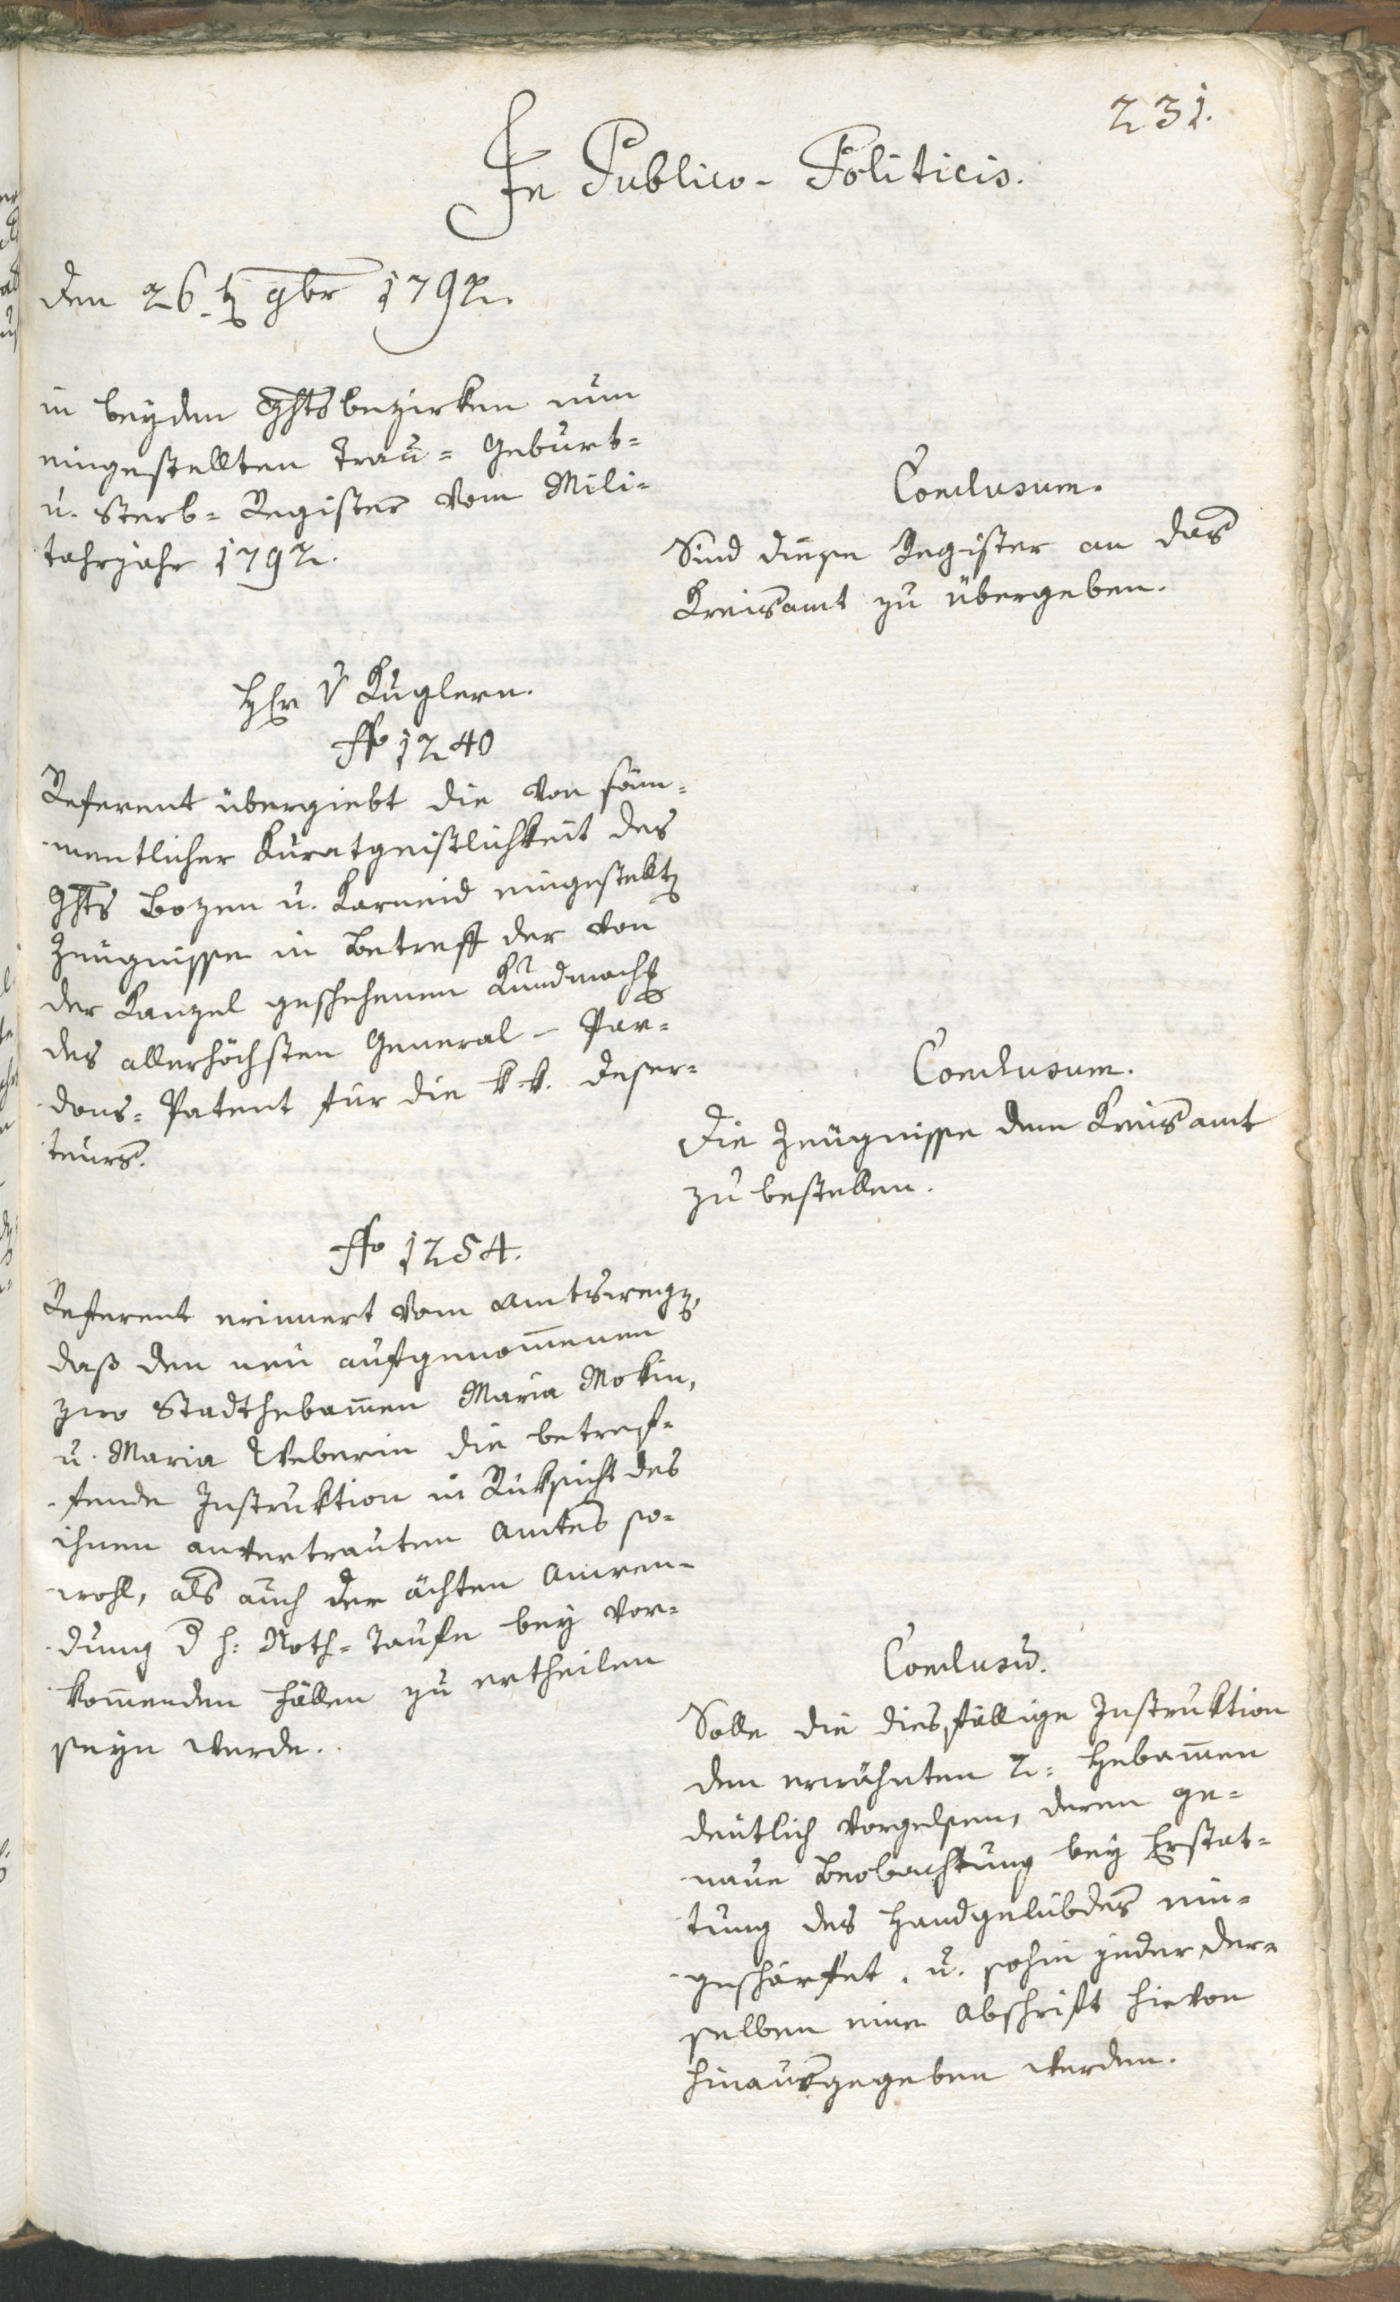 231.
In Publico-Politicis.
den 26.t 9br 1792.
in beyden Ghtsbezirken nun
eingestellten Trau= Geburt=
u. Sterb= Register vom Mili=
tahrjahr 1792.
Conclusum.
Sind diese Register an das
Kreisamt zu übergeben.
Hr v Kuglern.
No 1240
Referent übergiebt die von säm=
mentlicher Kuratgeistlichkeit des
Ghts Bozen u. Karneid eingestellt
Zeugnisse in Betreff der von
der Kanzel geschehenen Kundmach
des allerhöchsten General-Par=
dons=Patent für die k.k. Deser=
teurs.
Conclusum.
Die Zeugnisse dem Kreisamt
zu bestellen.
No 1254.
Referent erinnert vom Amtsweg,
daß den neu aufgenom̅enen
zwo Stadthebam̅en Maria Mokin,
u. Maria Weberin die betref=
fende Instruktion in Rüksicht des
ihnen anvertrauten Amtes so=
wohl, als auch der ächten Anwen=
dung d h: Noth=Taufe bey vor=
kom̅enden Fällen zu ertheilen
seyn werde.
Conclusu̅.
Solle die diesfällige Instruktion
den erwähnten 2: Hebam̅en
deutlich vorgelesen, deren ge=
naue Beobachtung bey Erstat=
tung des Handgelübdes ein=
geschärfet, u. sohin jeder der=
selben eine Abschrift hievon
hinausgegeben werden.